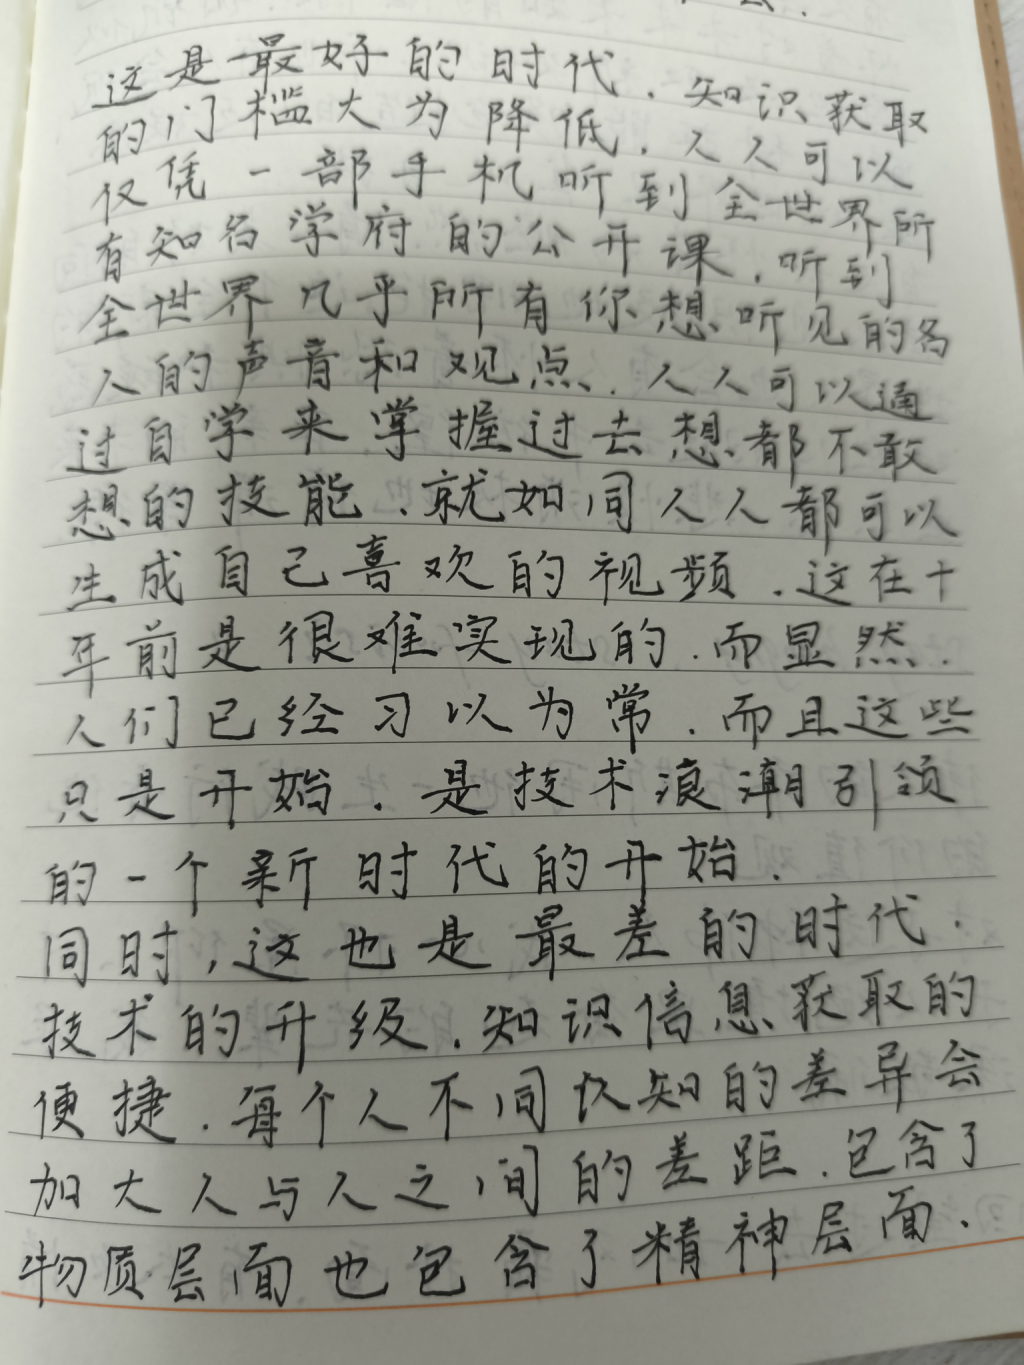 这是最好的时代.知识获取
的门槛大为降低.人人可以
仅凭一部手机听到全世界所
有知名学府的公开课.听到
全世界几乎所有你想听见的名
人的声音和观点.人人可以通
过自学来掌握过去想都不敢
想的技能.就如同人人都可以
生成自己喜欢的视频.这在十
年前是很难实现的.而显然.
人们已经习以为常.而且这些
只是开始.是技术浪潮引领
的一个新时代的开始.
同时,这也是最差的时代.
技术的升级.知识信息获取的
便捷.每个人不同认知的差异会
加大人与人之间的差距.包含了
物质层面也包含了精神层面.